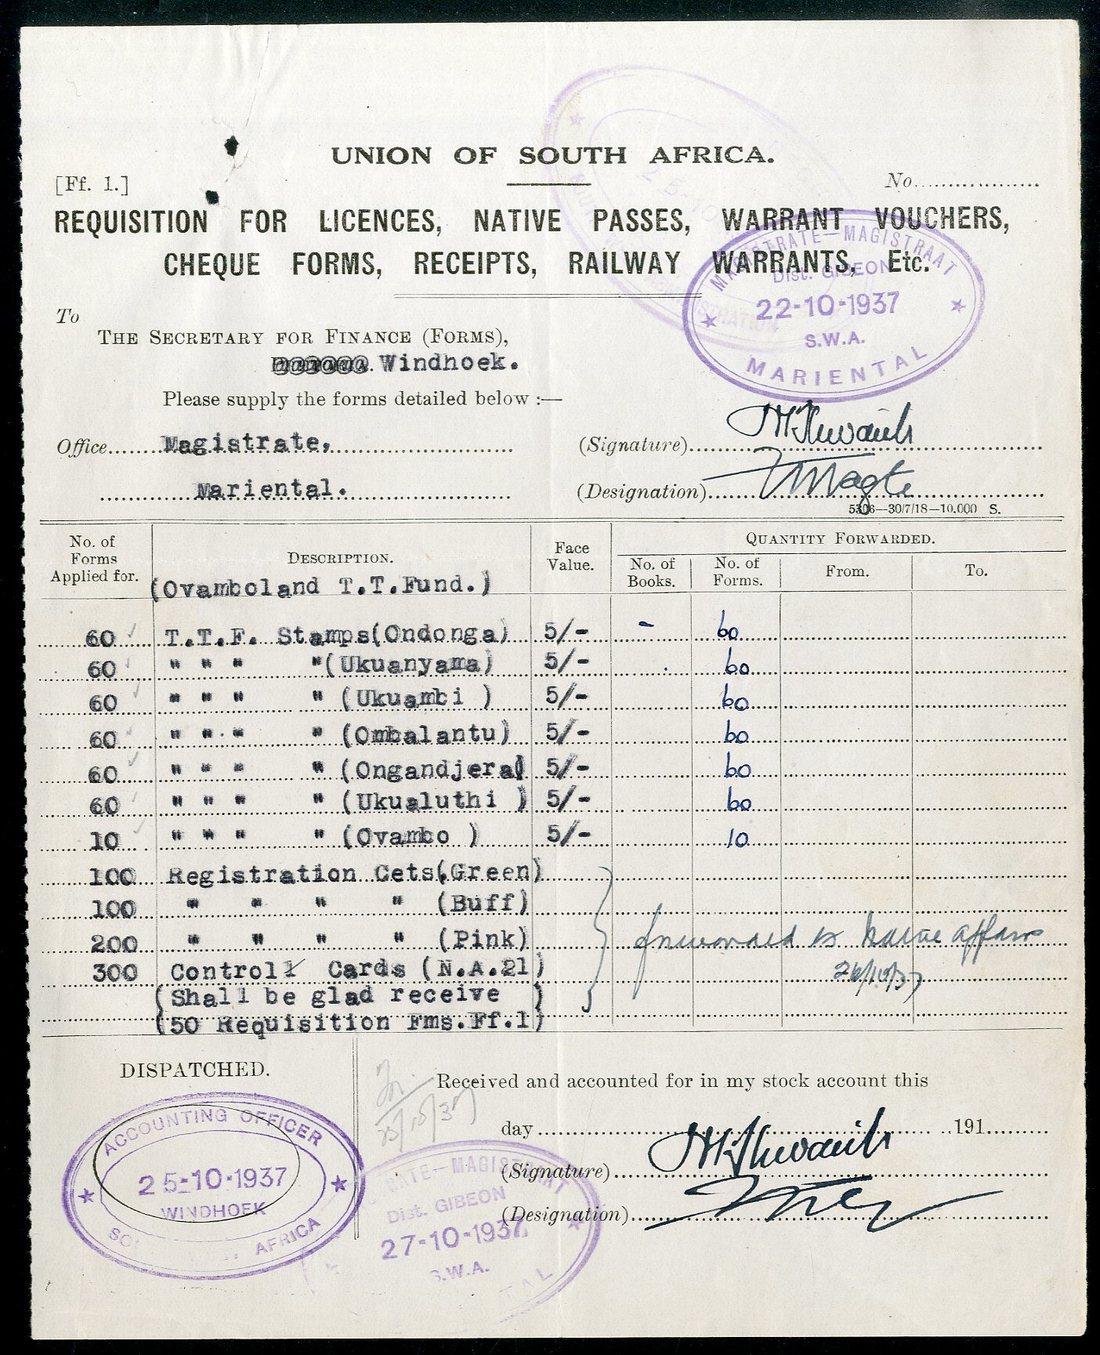 UNION OF SOUTH AFRICA.
[Ff. 1.]
No.
REQUISITION FOR LICENCES, NATIVE PASSES, WARRANT VOUCHERS,
CHEQUE FORMS, RECEIPTS, RAILWAY WARRANTS, Etc.
MAGISTRATE—MAGISTRAAT
Dist. GIBEON
22-10-1937
S.W.A.
MARIENTAL
To
THE SECRETARY FOR FINANCE (FORMS),
Windhoek.
Please supply the forms detailed below :—
Office Magistrate,
(Signature)
Mariental.
(Designation)
5306—30/7/18—10,000 S.
No. of Forms Applied for.
DESCRIPTION.
Face Value.
QUANTITY FORWARDED.
No. of Books.
No. of Forms.
From.
To.
(Ovamboland T.T.Fund.)
60 T.T.F. Stamps(Ondonga) 5/- - 60
60 " " " "(Ukuanyama) 5/- 60
60 " " " " (Ukuambi ) 5/- 60
60 " " " " (Ombalantu) 5/- 60
60 " " " " (Ongandjera) 5/- 60
60 " " " " (Ukualuthi ) 5/- 60
10 " " " " (Ovambo ) 5/- 10
100 Registration Cets(Green)
100 " " " " (Buff)
200 " " " " (Pink) forwarded to Native Affairs
300 Control Cards (N.A.21) 26/10/37
(Shall be glad receive )
(50 Requisition Fms.Ff.1)
DISPATCHED.
Received and accounted for in my stock account this
day 191
(Signature)
(Designation)
ACCOUNTING OFFICER
25-10-1937
WINDHOEK
AFRICA
MAGISTRAAT
Dist. GIBEON
27-10-1937
S.W.A.